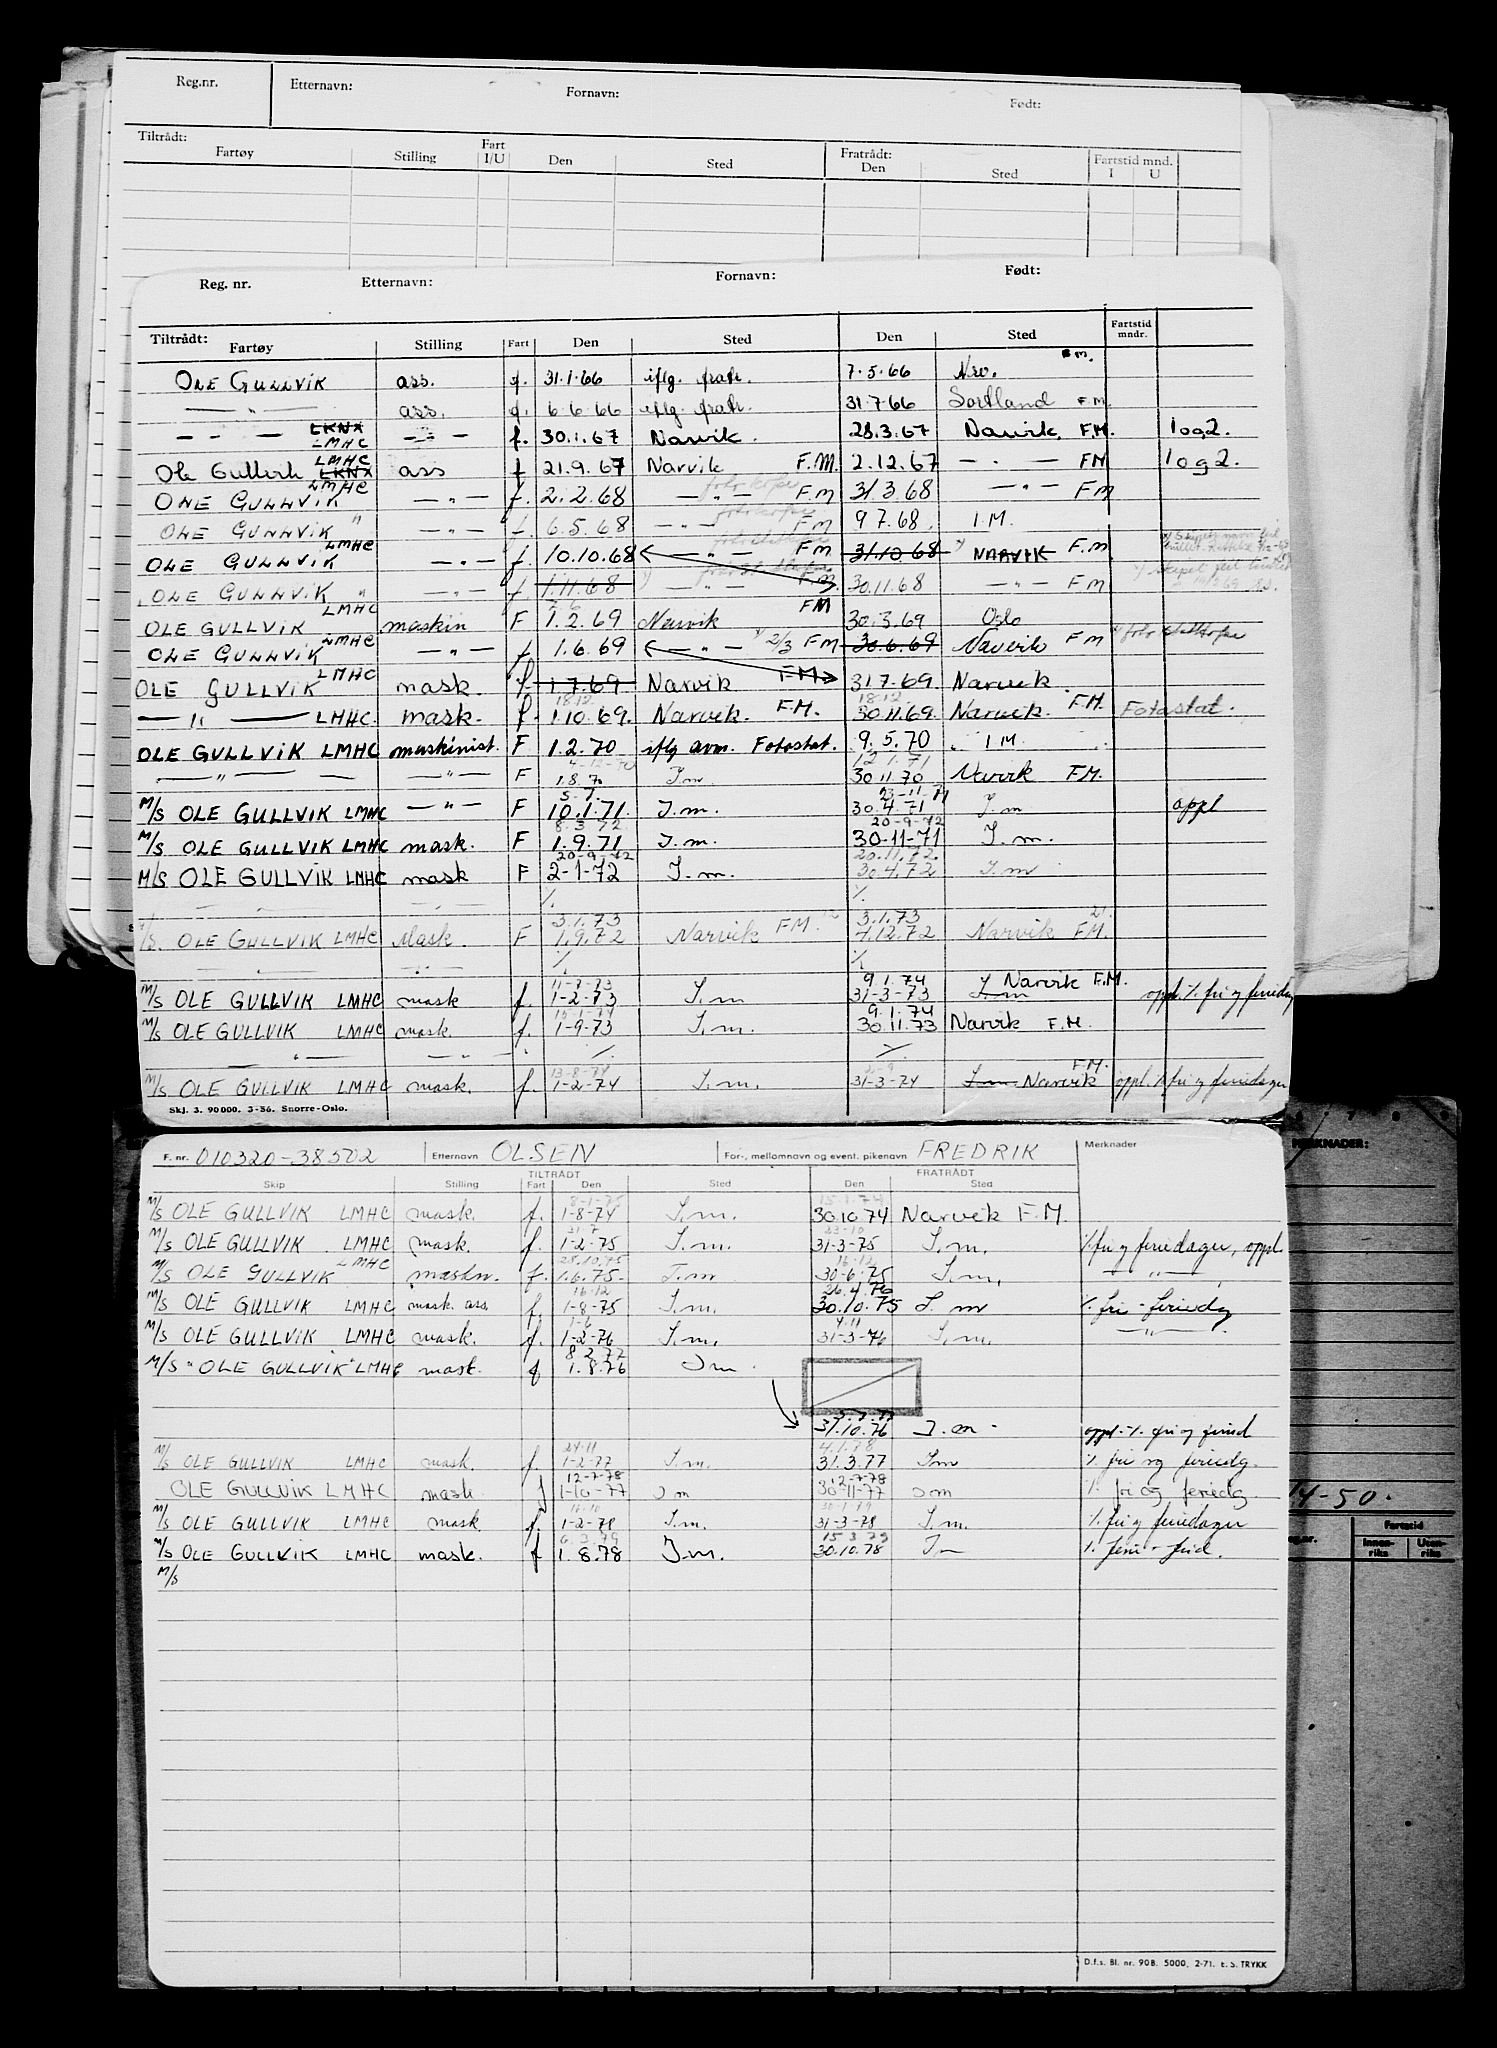 Reg.nr. Etternavn: Fornavn: Født:
Tiltrådt: Fratrådt:
Fartøy Stilling Fart I/U Den Sted Den Sted Fartstid mnd. I U
Reg. nr. Etternavn: Fornavn: Født:
Tiltrådt:
Fartøy Stilling Fart Den Sted Den Sted Fartstid mndr.
OLE GULLVIK ass. f. 31.1.66 iflg. fratr. 7.5.66 Nrv. F.M.
— " — ass. f. 6.6.66 iflg fratr. 31.7.66 Sortland F.M.
— " — LKNX LMHC — " — f. 30.1.67 Narvik. 28.3.67 Narvik, F.M. log 2.
Ole Gullvik LMHC LKNX ass f 21.9.67 Narvik F.M. 2.12.67 — " — FM log 2.
OLE GULLVIK LMHC — " — f. 2.2.68 — " — F.M 31.3.68 — " — FM
OLE GULLVIK " — " — f. 6.5.68 — " — FM 9 7.68. I.M.
OLE GULLVIK LMHC — " — f. 10.10.68 — " — FM 31.10.68 NARVIK F.M
OLE GULLVIK " — " — f. 1.11.68 — " — F.M. 30.11.68 — " — FM
OLE GULLVIK LMHC maskin F 1.2.69 Narvik FM 30.3.69 Oslo
OLE GULLVIK LMHC — " — f 1.6.69 — " — 2/3 FM 30.6.69 Narvik FM
OLE GULLVIK LMHC mask. f. 1.7.69 Narvik F.M. 31.7.69. Narvik
— " — LMHC. mask. f. 18.12. 1.10.69. Narvik. F.M. 18.12. 30.11.69. Narvik. F.M. Fotostat.
OLE GULLVIK LMHC maskinist. F 1.2.70 iflg avm. Fotostat. 9.5.70 I M.
— " — — " — F 4-12-70 1.8.70 I m. 12.1.71 30.11.70 Narvik F.M.
M/S OLE GULLVIK LMHC — " — F 5.7. 10.1.71 I.m. 23-11-71 30.4.71 I.m oppl
M/S OLE GULLVIK LMHC mask. F 8.3.72 1.9.71 I.m. 20-9-72 30-11-71 I.m.
M/S OLE GULLVIK LMHC mask F 20-9-72 2-1-72 I.m. 20.11.72. 30.4.72 I.m
— " — — " — ·/. ·/.
M/S OLE GULLVIK LMHC Mask. F 3.1.73 1.9.72 Narvik F.M. 3.1.73 7.12.72 Narvik F.M.
— " — — " — ·/. ·/.
M/S OLE GULLVIK LMHC mask f. 11-7-73 1-2-73 I.m 9.1.74 31-3-73 I.m Narvik F.M. oppl. ·/. fri og feriedag
M/S OLE GULLVIK LMHC mask. f. 15-1-74 1-9-73 I.m. 9.1.74 30.11.73 Narvik F.M.
— " — — " — ·/. ·/.
M/S OLE GULLVIK LMHC mask. f. 13-8-74 1-2-74 I.m. 31-3-74 I.m Narvik F.M. oppl. ·/. fri og feriedager
Skj. 3. 90000. 3-56. Snorre-Oslo.
F. nr. 010320-38502 Etternavn OLSEN For-, mellomnavn og event. pikenavn FREDRIK Merknader
TILTRÅDT FRATRÅDT
Skip Stilling Fart Den Sted Den Sted
M/S OLE GULLVIK LMHC mask. f. 8-1-75 1-8-74 I.m. 30.10.74 Narvik F.M.
M/S OLE GULLVIK LMHC mask. f. 31.7 1-2-75 I.m. 23-10 31-3-75 I.m, ·/. fri og feriedager, oppl.
M/S OLE GULLVIK LMHC maskn. f. 28.10.75 1.6.75. I.m 16.12 30-6.75 I.m, — " —
M/S OLE GULLVIK LMHC mask. ass. f 16.12 1-8-75 I.m. 26.4.76 30.10.75 I. m ·/. fri - feriedg
M/S OLE GULLVIK LMHC mask. f. 1-6 1-2-76 I.m, 4.11 31-3-76 I.m, — " —
M/S "OLE GULLVIK" LMHC mask. f 8.2.77 1.8.76 Im.
31.10.76 I.m - oppl. ·/. fri og feried
M/S OLE GULLVIK LMHC mask. f. 24.11 1-2-77 I.m. 4.1.78 31.3.77 Im ·/. fri og feriedg.
OLE GULLVIK LMHC mask f 12-7-78 1-10-77 I m 12-7-78 30-11-77 I m ·/. fri og feriedg
M/S OLE GULLVIK LMHC mask. f. 16.10 1-2-78 I.m. 30-1-79 31-3-78 I.m. ·/. fri og feriedager
M/S OLE GULLVIK LMHC mask. f 6.3.79 1.8.78 I.m. 15.3.79 30.10.78 Im ·/. ferie - frid.
M/S
D.f.s. Bl. nr. 90B. 5000, 2-71. E. S. TRYKK
6 7 8 9
MERKNADER:
4-50.
Fartstid
Innenriks Utenriks